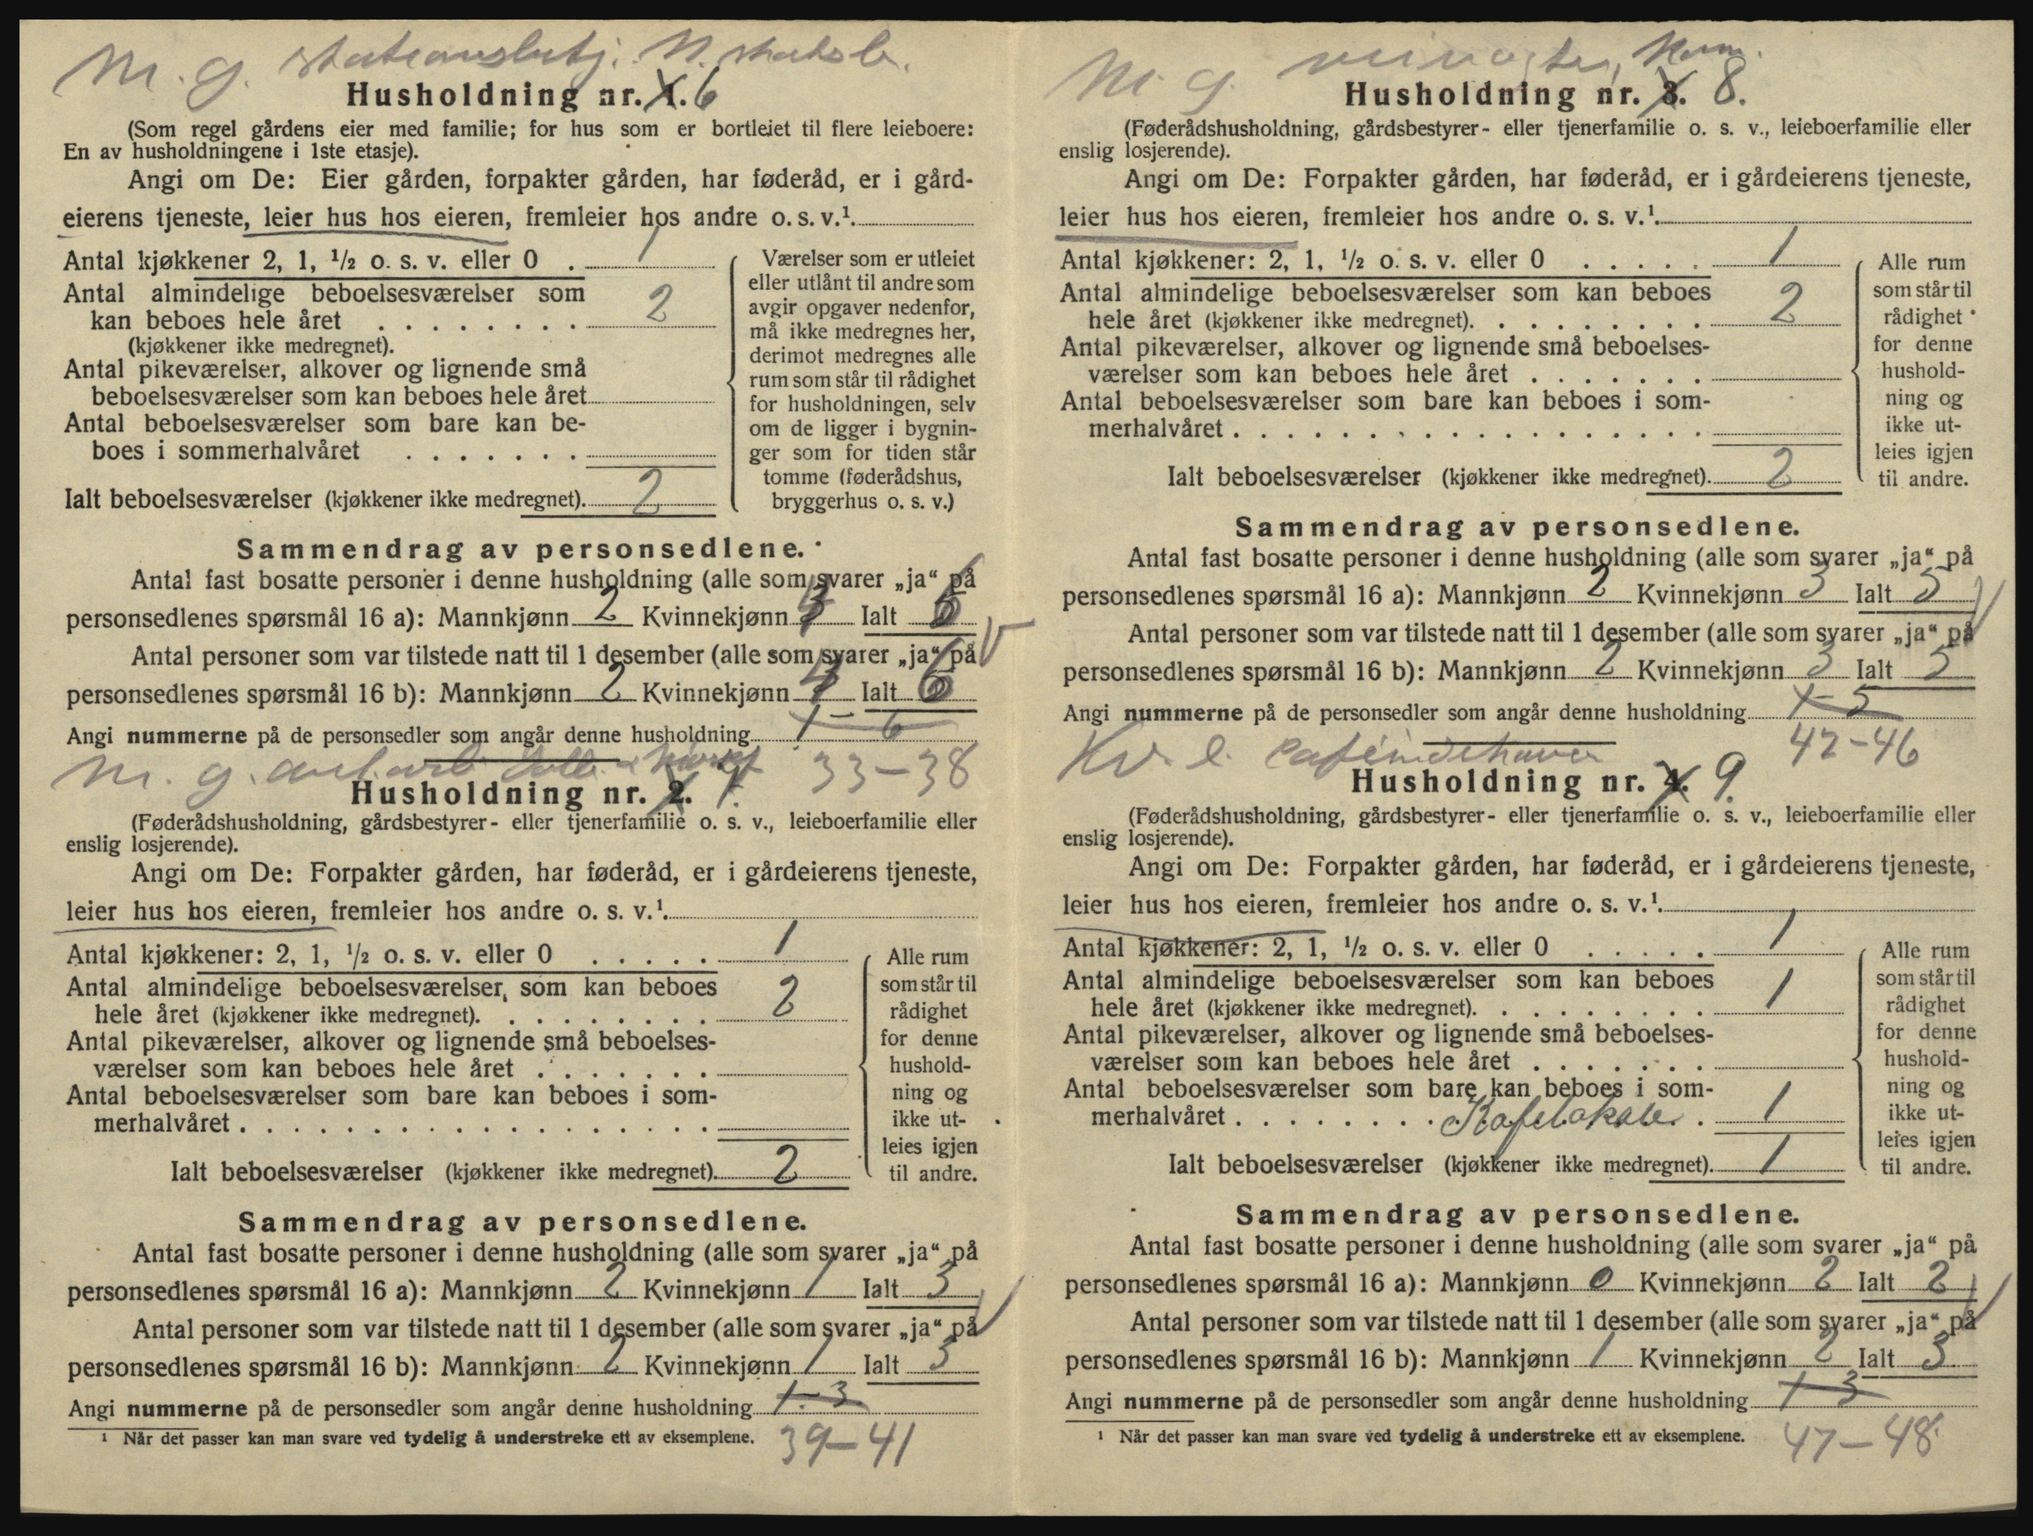 M. g. stationsbetj. N. statsb.
Husholdning nr. 1. 6
(Som regel gårdens eier med familie; for hus som er bortleiet til flere leieboere:
En av husholdningene i 1ste etasje).
Angi om De: Eier gården, forpakter gården, har føderåd, er i gård-
eierens tjeneste, leier hus hos eieren, fremleier hos andre o. s. v.¹.
Antal kjøkkener 2, 1, ½ o. s. v. eller 0 . 1
Antal almindelige beboelsesværelser som
kan beboes hele året . . . . . . . . 2
(kjøkkener ikke medregnet).
Antal pikeværelser, alkover og lignende små
beboelsesværelser som kan beboes hele året
Antal beboelsesværelser som bare kan be-
boes i sommerhalvåret . . . . . . .
Ialt beboelsesværelser (kjøkkener ikke medregnet). 2
Værelser som er utleiet
eller utlånt til andre som
avgir opgaver nedenfor,
må ikke medregnes her,
derimot medregnes alle
rum som står til rådighet
for husholdningen, selv
om de ligger i bygnin-
ger som for tiden står
tomme (føderådshus,
bryggerhus o. s. v.)
Sammendrag av personsedlene.
Antal fast bosatte personer i denne husholdning (alle som svarer „ja“ på
personsedlenes spørsmål 16 a): Mannkjønn 2 Kvinnekjønn 4 Ialt 6
Antal personer som var tilstede natt til 1 desember (alle som svarer „ja“ på
personsedlenes spørsmål 16 b): Mannkjønn 2 Kvinnekjønn 4 Ialt 6
Angi nummerne på de personsedler som angår denne husholdning 1 – 6
33–38
M. g.
Husholdning nr. 2. 7.
(Føderådshusholdning, gårdsbestyrer- eller tjenerfamilie o. s. v., leieboerfamilie eller
enslig losjerende).
Angi om De: Forpakter gården, har føderåd, er i gårdeierens tjeneste,
leier hus hos eieren, fremleier hos andre o. s. v.¹.
Antal kjøkkener: 2, 1, ½ o. s. v. eller 0 . . . . . 1
Antal almindelige beboelsesværelser, som kan beboes
hele året (kjøkkener ikke medregnet). . . . . . . . . 2
Antal pikeværelser, alkover og lignende små beboelses-
værelser som kan beboes hele året . . . . . . .
Antal beboelsesværelser som bare kan beboes i som-
merhalvåret . . . . . . . . . . . . . . . . . .
Ialt beboelsesværelser (kjøkkener ikke medregnet). 2
Alle rum
som står til
rådighet
for denne
hushold-
ning og
ikke ut-
leies igjen
til andre.
Sammendrag av personsedlene.
Antal fast bosatte personer i denne husholdning (alle som svarer „ja“ på
personsedlenes spørsmål 16 a): Mannkjønn 2 Kvinnekjønn 1 Ialt 3
Antal personer som var tilstede natt til 1 desember (alle som svarer „ja“ på
personsedlenes spørsmål 16 b): Mannkjønn 2 Kvinnekjønn 1 Ialt 3
Angi nummerne på de personsedler som angår denne husholdning 1-3
¹ Når det passer kan man svare ved tydelig å understreke ett av eksemplene.
39–41
M. g. Kom.
Husholdning nr. 3. 8.
(Føderådshusholdning, gårdsbestyrer- eller tjenerfamilie o. s. v., leieboerfamilie eller
enslig losjerende).
Angi om De: Forpakter gården, har føderåd, er i gårdeierens tjeneste,
leier hus hos eieren, fremleier hos andre o. s. v.¹.
Antal kjøkkener: 2, 1, ½ o. s. v. eller 0 . . . . . 1
Antal almindelige beboelsesværelser som kan beboes
hele året (kjøkkener ikke medregnet). . . . . . . . . 2
Antal pikeværelser, alkover og lignende små beboelses-
værelser som kan beboes hele året . . . . . . .
Antal beboelsesværelser som bare kan beboes i som-
merhalvåret . . . . . . . . . . . . . . . . . .
Ialt beboelsesværelser (kjøkkener ikke medregnet). 2
Alle rum
som står til
rådighet
for denne
hushold-
ning og
ikke ut-
leies igjen
til andre.
Sammendrag av personsedlene.
Antal fast bosatte personer i denne husholdning (alle som svarer „ja“ på
personsedlenes spørsmål 16 a): Mannkjønn 2 Kvinnekjønn 3 Ialt 5
Antal personer som var tilstede natt til 1 desember (alle som svarer „ja“ på
personsedlenes spørsmål 16 b): Mannkjønn 2 Kvinnekjønn 3 Ialt 5
Angi nummerne på de personsedler som angår denne husholdning 1-5
42–46
Kv. e. caféindehaver
Husholdning nr. 4. 9.
(Føderådshusholdning, gårdsbestyrer- eller tjenerfamilie o. s. v., leieboerfamilie eller
enslig losjerende).
Angi om De: Forpakter gården, har føderåd, er i gårdeierens tjeneste,
leier hus hos eieren, fremleier hos andre o. s. v.¹.
Antal kjøkkener: 2, 1, ½ o. s. v. eller 0 . . . . . 1
Antal almindelige beboelsesværelser som kan beboes
hele året (kjøkkener ikke medregnet). . . . . . . . . 1
Antal pikeværelser, alkover og lignende små beboelses-
værelser som kan beboes hele året . . . . . . .
Antal beboelsesværelser som bare kan beboes i som-
merhalvåret . . . . . . . . Kafelokale . 1
Ialt beboelsesværelser (kjøkkener ikke medregnet). 1
Alle rum
som står til
rådighet
for denne
hushold-
ning og
ikke ut-
leies igjen
til andre.
Sammendrag av personsedlene.
Antal fast bosatte personer i denne husholdning (alle som svarer „ja“ på
personsedlenes spørsmål 16 a): Mannkjønn 0 Kvinnekjønn 2 Ialt 2
Antal personer som var tilstede natt til 1 desember (alle som svarer „ja“ på
personsedlenes spørsmål 16 b): Mannkjønn 1 Kvinnekjønn 2 Ialt 3
Angi nummerne på de personsedler som angår denne husholdning 1-3
¹ Når det passer kan man svare ved tydelig å understreke ett av eksemplene.
47–48.